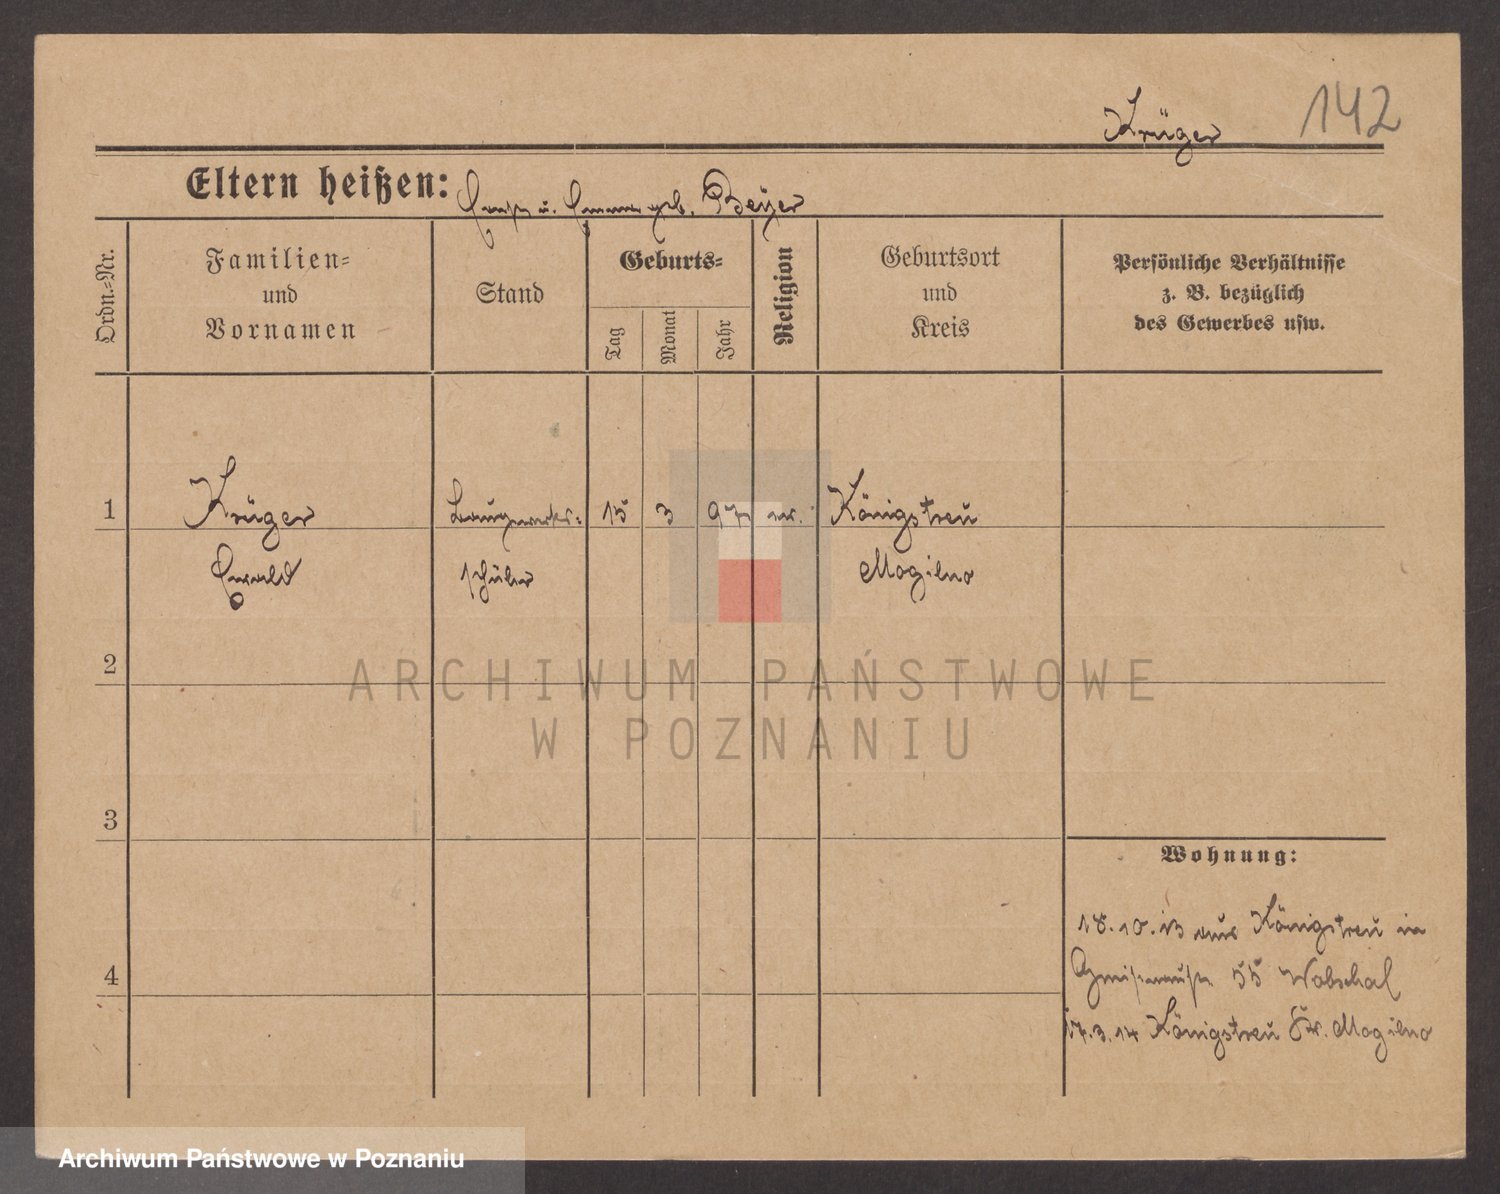 Krüger 142
Eltern heißen: Ernst u. Emma geb. Beyer
Ordn.=Nr.
Familien=
und
Vornamen
Stand
Geburts=
Tag
Monat
Jahr
Religion
Geburtsort
und
Kreis
Persönliche Verhältnisse
z. B. bezüglich
des Gewerbes usw.
1 Krüger Baugewerks= 15 3 97 ev. Königstreu
Ewald schüler Mogilno
2
3
4
Wohnung:
18.10.13 aus Königstreu in
Gneisenaustr. 55 Wobschal
17.3.14 Königstreu Kr. Mogilno
ARCHIWUM PAŃSTWOWE
W POZNANIU
Archiwum Państwowe w Poznaniu